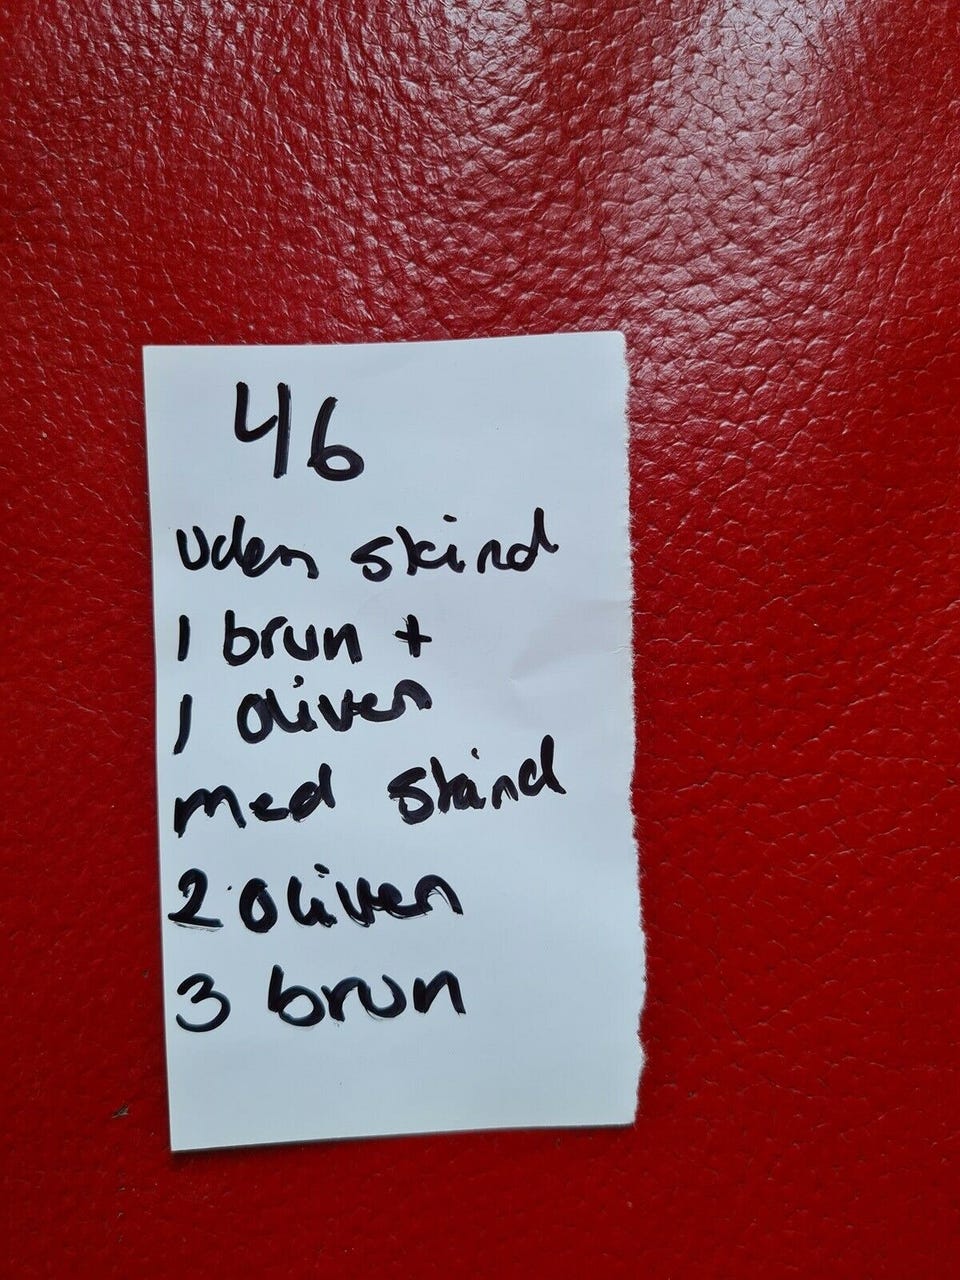 46
uden skind
1 brun +
1 oliven
med skind
2 oliven
3 brun